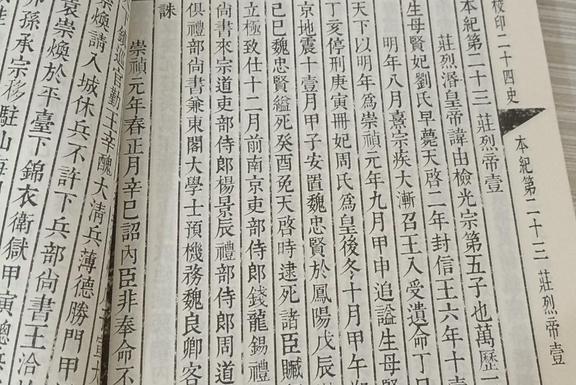 校印二十四史 本紀第二十三 莊烈帝壹
本紀第二十三 莊烈帝壹
莊烈湣皇帝諱由檢光宗第五子也萬歷
生母賢妃劉氏早薨天啓二年封信王六年十
明年八月熹宗疾大漸召王入受遺命丁
天下以明年爲崇禎元年九月甲申追謚生母賢
丁亥停刑庚寅冊妃周氏爲皇後冬十月甲午
京地震十壹月甲子安置魏忠賢於鳳陽戊辰
己巳魏忠賢縊死癸酉免天啓時逮死諸臣贓
立極致仕十二月前南京吏部侍郎錢龍錫禮
尚書來宗道吏部侍郎楊景辰禮部侍郎周道
俱禮部尚書兼東閣大學士預機務魏良卿客
誅
崇禎元年春正月辛巳詔內臣非奉命不
巡官勤王辛醜大清兵薄德勝門甲
崇煥請入城休兵不許下兵部尚書王洽
袁崇煥於平臺下錦衣衛獄甲寅總兵
孫承宗移駐山海